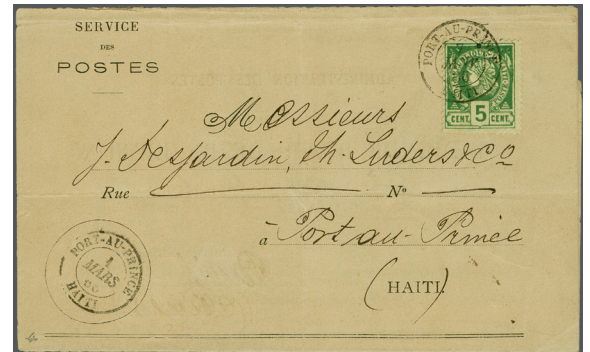 SERVICE
DES
POSTES
PORT-AU-PRINCE
HAITI
5
CENT. CENT.
Messieurs
J. Desjardin, Th. Luders & Co
Rue No
à Port-au-Prince
(HAITI.
PORT-AU-PRINCE
1
MARS
HAITI